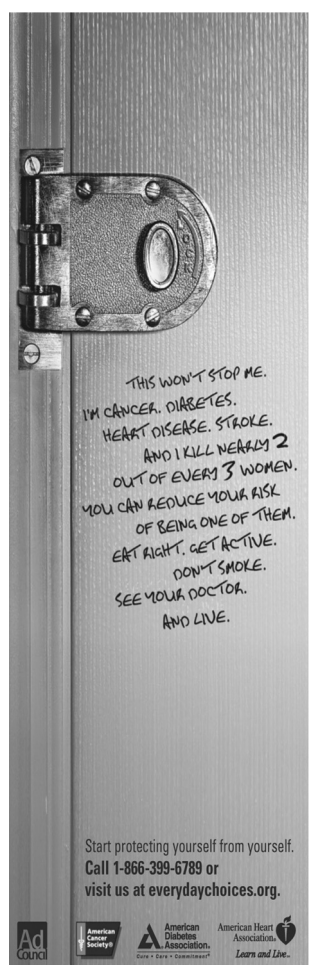 THIS WON'T STOP ME.
I'M CANCER. DIABETES.
HEART DISEASE. STROKE.
AND I KILL NEARLY 2
OUT OF EVERY 3 WOMEN.
YOU CAN REDUCE YOUR RISK
OF BEING ONE OF THEM.
EAT RIGHT. GET ACTIVE.
DON'T SMOKE.
SEE YOUR DOCTOR.
AND LIVE.
Start protecting yourself from yourself.
Call 1-866-399-6789 or
visit us at everydaychoices.org.
Ad
Council
American
Cancer
Society®
American
Diabetes
Association®
Cure • Care • Commitment®
American Heart
Association®
Learn and Live℠